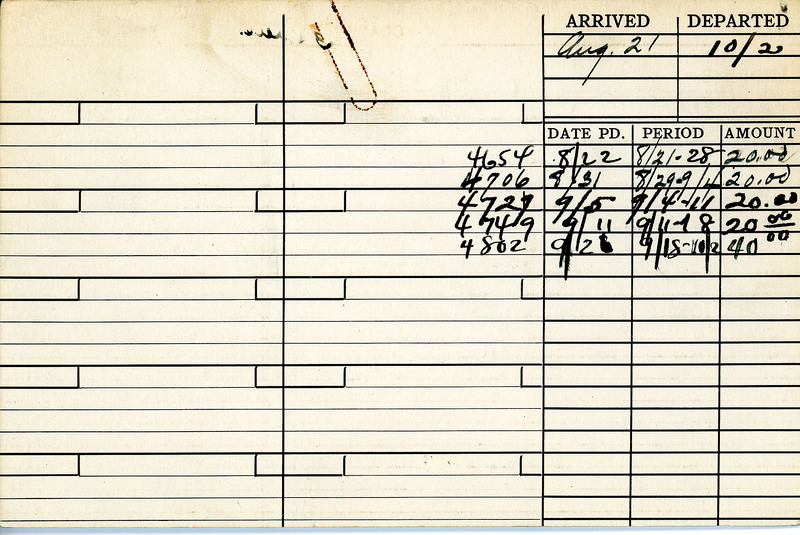 ARRIVED DEPARTED
Aug. 21 10/2
DATE PD. PERIOD AMOUNT
4654 8/22 8/21-28 20.00
4706 8/31 8/29-9/4 20.00
4727 9/5 9/4-11 20.00
4749 9/11 9/11-18 20 00
4802 9/18-10/2 40 00